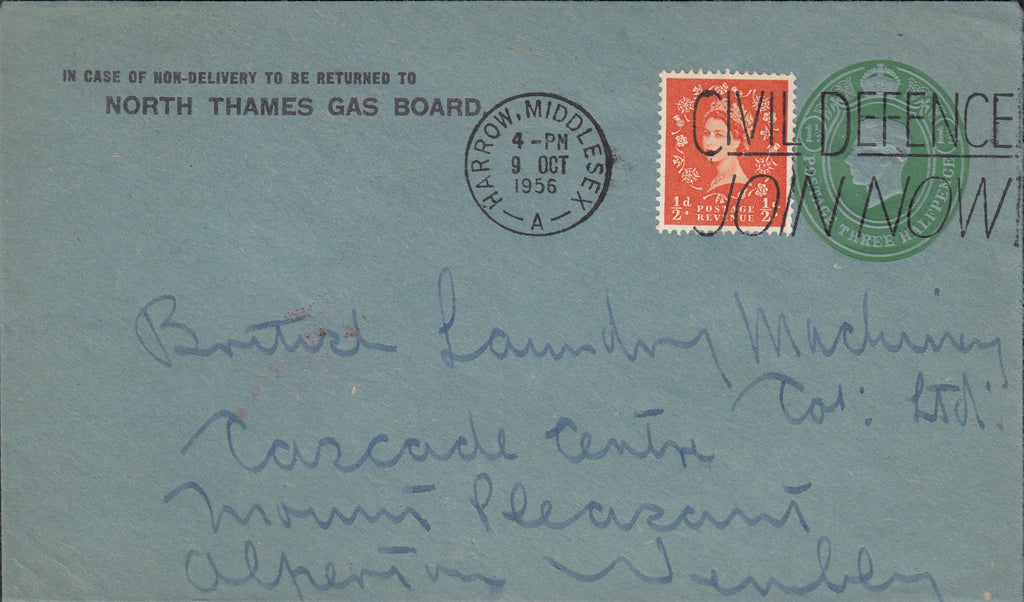 IN CASE OF NON-DELIVERY TO BE RETURNED TO
NORTH THAMES GAS BOARD
HARROW, MIDDLESEX
4 - PM
9 OCT
1956
- A -
½d ½d
POSTAGE
REVENUE
CIVIL DEFENCE
JOIN NOW
THREE HALFPENCE
British Laundry Machinery
Coy: Ltd:
Cascade Centre
Mount Pleasant
Alperton Wembley